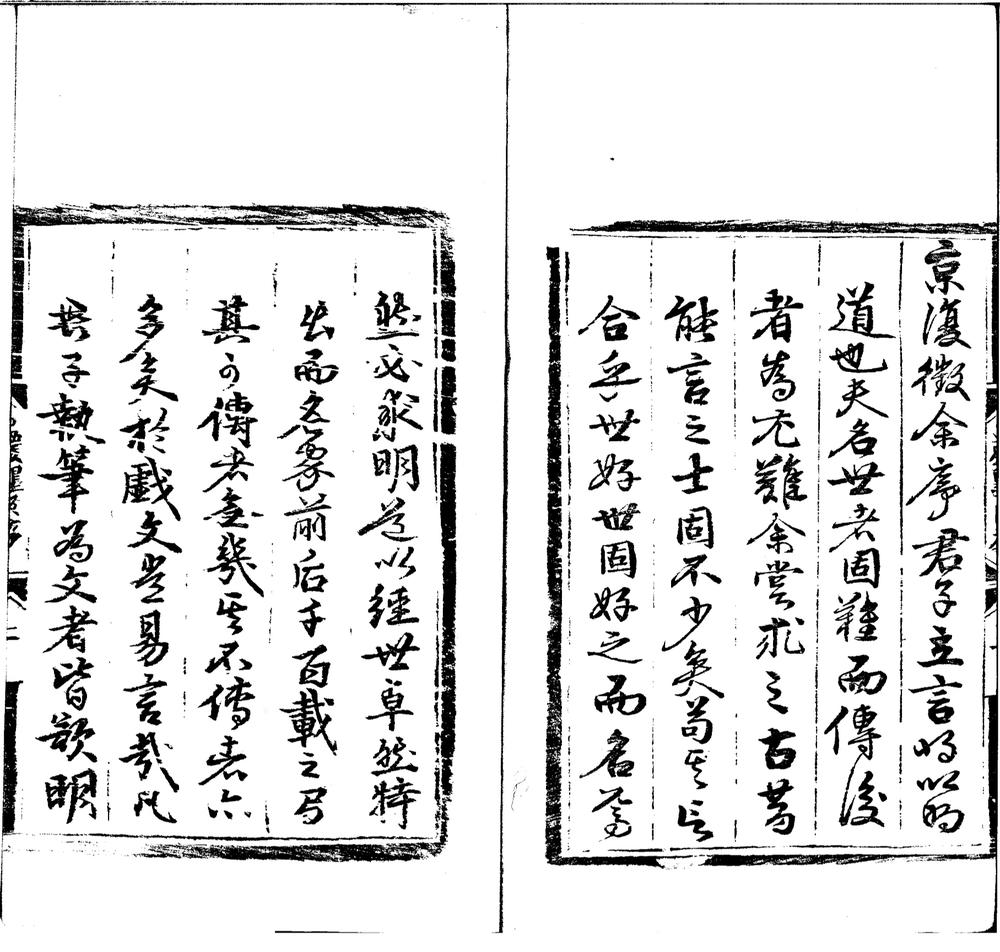 京復徵余序君子立言將以明
道也夫名世者固難而傳後
者為尤難余嘗求之古昔
能言之士固不少矣苟其言
合乎世好世固好之而名
然必明道以經世卓然特
出而名家前后千百載之間
其可傳者無幾其不傳者亦
多矣於戲文豈易言哉凡
子執筆為文者皆欲明